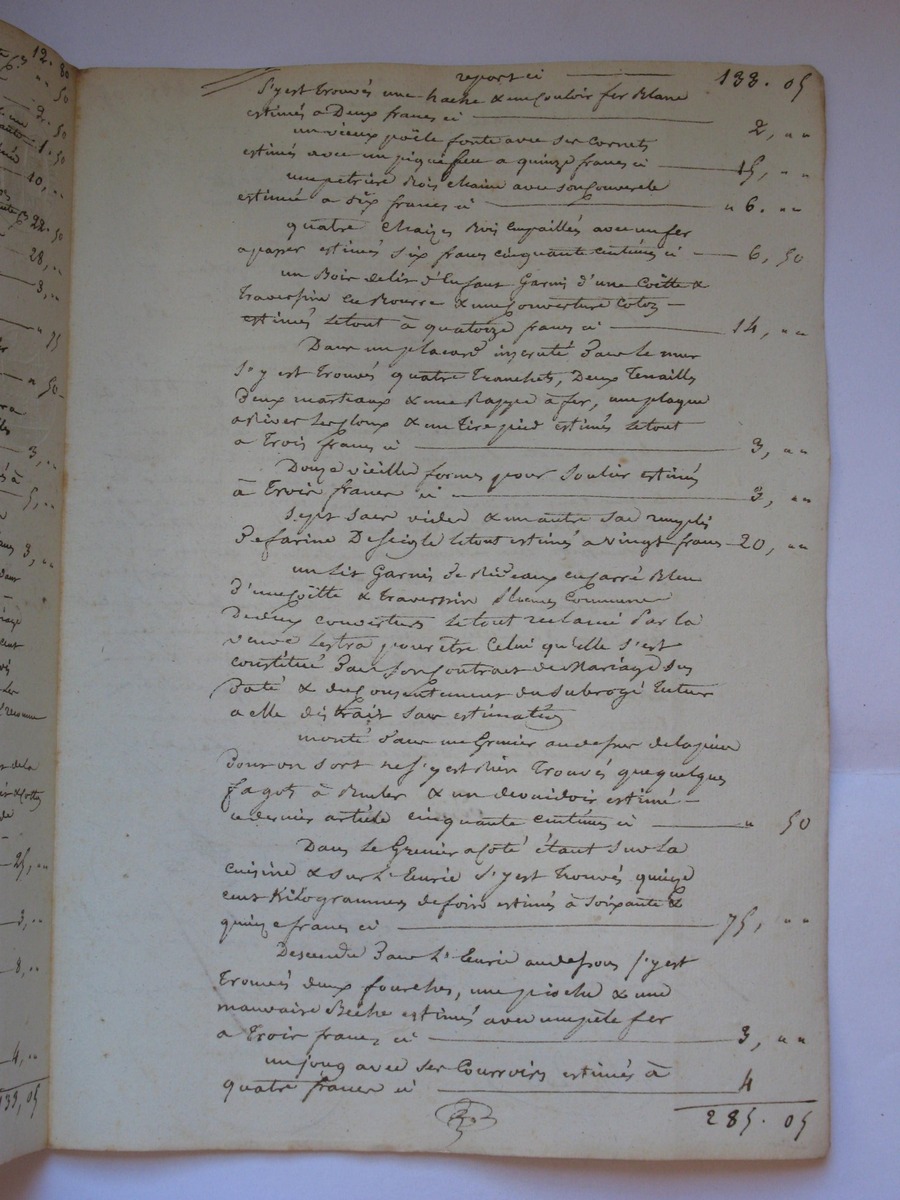 report ci 133. 05
S'y est trouvés une hache & un couloir fer blanc
estimés à Deux francs ci 2, " "
un vieux poële fonte avec ses cornets
estimés avec un piquefeu a quinze francs ci 15, " "
une petrière Bois chaine avec son couvercle
estimé a six francs ci " 6. " "
quatre chaizes Bois Empaillés avec un fer
a passer estimés six francs cinquante centimes ci 6, 50
un Bois de lit d'Enfant Garni d'une Coëtte &
Traversin en Bourre & une Couverture Coton
estimés le tout à quatorze francs ci 14, " "
Dans un placard incruté dans le mur
S'y est trouvés quatre Tranchets, Deux Tenailles
Deux marteaux & une Rappe à fer, une plaque
a River les clous & un Tire pied estimés le tout
a Trois francs ci 3, " "
Douze vieille formes pour Soulier estimés
à Trois francs ci 3, " "
Sept sacs vides & un autre sac remplis
De farine De Seigle le tout estimés a vingt francs 20, " "
un Lit Garnis de Rideaux en sarre Bleu
D'une Coëtte & Traversin plumes Commune
De deux couvertures le tout reclamé par la
veuve Lestra pour être Celui qu'elle s'est
constitué dans son Contract de Mariage sus
Daté & du Consentement du Subrogé tuteur
a elle distrait sans estimation
monté dans un Grenier au dessus de la pièce
Dont on sort ne s'y est Rien Trouvés que quelques
fagots à Bruler & un devuidoir estimé
ce dernier article cinquante centimes ci " 50
Dans le Grenier a Coté étant sur la
cuisine & sur L'Ecurie S'y est Trouvés quinze
cens Kilogrammes de foins estimés à Soixante &
quinze francs ci 75, " "
Descendu Dans L'Ecurie au dessous S'y est
Trouvés deux fourches, une pioche & une
mauvaise Bêche estimés avec une pèle fer
a Trois francs ci 3, " "
un joug avec ses Courroies estimés à
quatre francs ci 4
285. 05